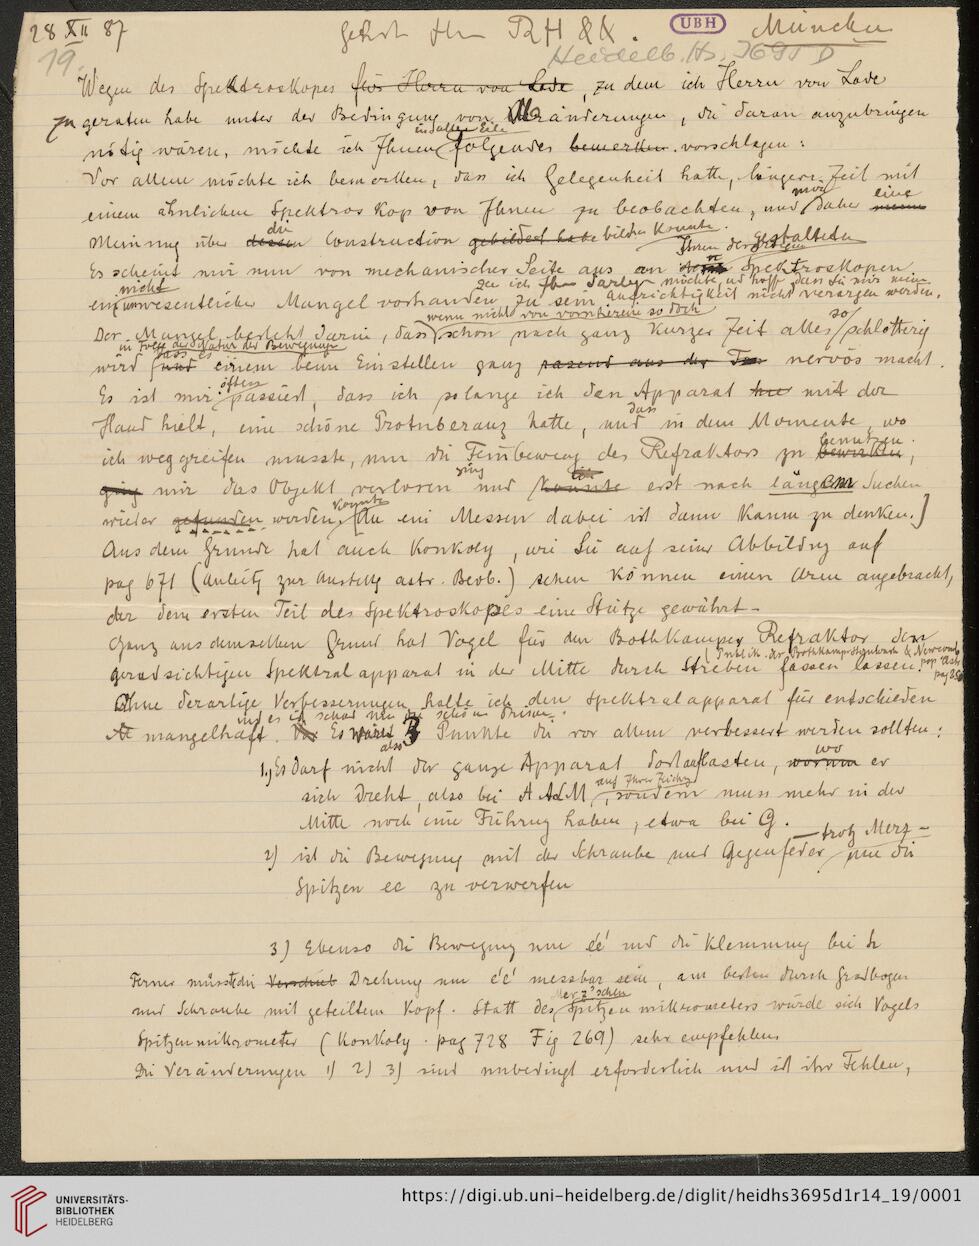 28 XII 87
UBH
München
19.
Heidelb. Hs. 3695 D
Wegen des Spektroskopes für Herrn von Lade, zu dem ich Herrn von Lade
zu geraten habe unter der Bedingung von Veränderungen, die daran anzubringen
in aller Eile
nötig wären, möchte ich Ihnen folgendes bemerken. vorschlagen:
Vor allem möchte ich bemerken, dass ich Gelegenheit hatte, längere Zeit mit
einem ähnlichen Spektroskop von Ihnen zu beobachten, und mir daher eine
die
Meinung über dessen Construction gebildet habe bilden konnte.
Ihren derartigen gestalteten
Es scheint mir nun von mechanischer Seite aus an Spektroskopen
nicht
ein unwesentlicher Mangel vorhanden zu sein,
Aufrichtigkeit nicht verargen werden.
wenn nicht von vornherein so doch
Der Mangel besteht darin, dass schon nach ganz kurzer Zeit alles so schlotterig
in Folge der Natur der Bewegungen
wird dass es einem beim Einstellen ganz nervös macht.
öfters
Es ist mir passiert, dass ich solange ich den Apparat mit der
Hand hielt, eine schöne Protuberanz hatte, und dass in dem Momente, wo
ich weggreifen musste, um die Feinbewegg des Refraktors zu benutzen,
ging mir das Objekt verloren ging und konnte erst nach längerem Suchen
wieder gefunden werden konnte. [An ein Messen dabei ist dann kaum zu denken.]
Aus dem Grunde hat auch Konkoly, wie Sie auf seiner Abbildung auf
pag 671 (Anleitg zur Anstellg astr. Beob.) sehen können einen Arm angebracht,
der dem ersten Teil des Spektroskopes eine Stütze gewährt –
Ganz aus demselben Grund hat Vogel für den Bothkamper Refraktor den
geradsichtigen Spektralapparat in der Mitte durch Streben fassen lassen.
Ohne derartige Verbesserungen halte ich den Spektralapparat für entschieden
und es ist schad um die schönen Prismen.
mangelhaft. Es wären also 3 Punkte die vor allem verbessert werden sollten:
1) Es darf nicht der ganze Apparat dort auflasten, worum wo er
auf Ihrer Zeichng
sich dreht, also bei A A d M, sondern muss mehr in der
Mitte noch eine Führung haben, etwa bei G.
2) ist die Bewegung mit der Schraube und Gegenfeder – trotz Merz – um die
Spitzen ec zu verwerfen
3) Ebenso die Bewegung um é é und die Klemmung bei h
Ferner müsste die Verschieb Drehung um é é messbar sein, am besten durch Gradbogen
Merz'schen
und Schraube mit geteiltem Kopf. Statt des Spitzenmikrometers würde sich Vogels
Spitzenmikrometer (Konkoly. pag 728 Fig 269) sehr empfehlen
Die Veränderungen 1) 2) 3) sind unbedingt erforderlich und ist ihr Fehlen,
UNIVERSITÄTS-
BIBLIOTHEK
HEIDELBERG
https://digi.ub.uni-heidelberg.de/diglit/heidhs3695d1r14_19/0001